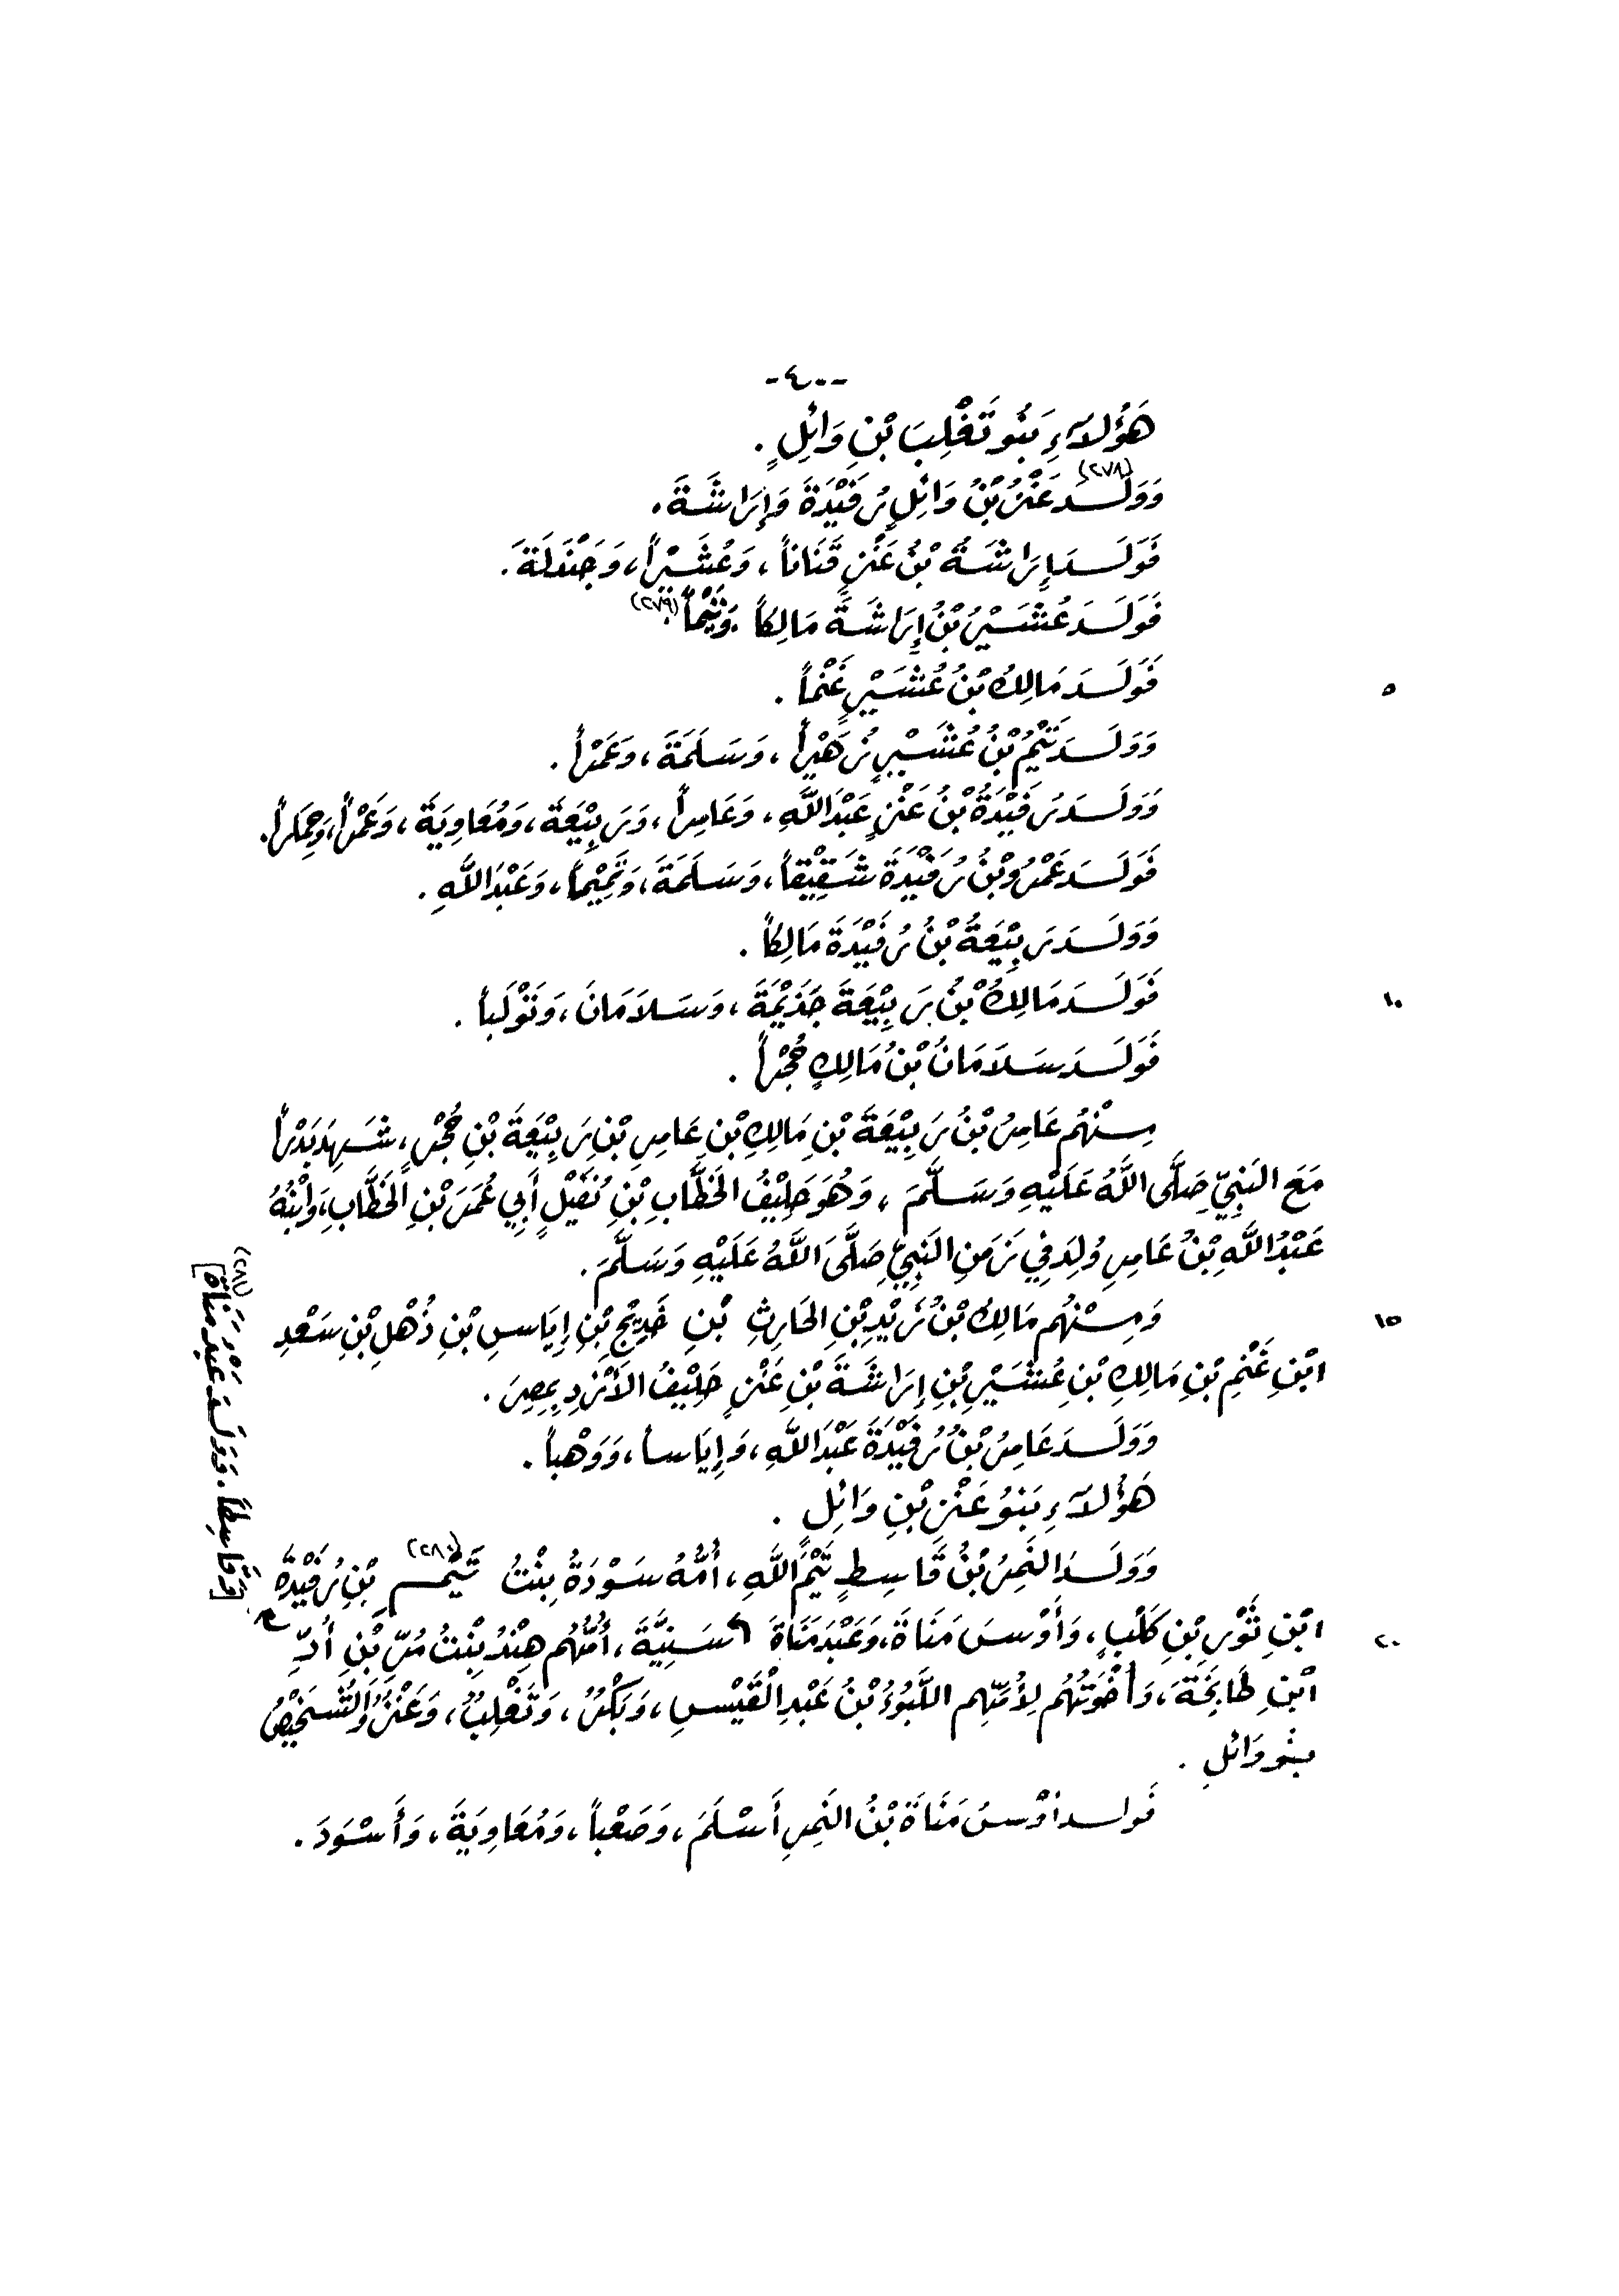 -٤٠٠-
هَؤُلَاءِ بَنُو تَغْلِبَ بْنِ وَائِلٍ .
وَوَلَدَ عَنْزُ بْنُ وَائِلٍ رُفَيْدَةَ وَإِرَاشَةَ . (٢٧٨)
فَوَلَدَ إِرَاشَةُ بْنُ عَنْزٍ قَنَاناً ، وَعُشَيْراً ، وَجَنْدَلَةَ .
فَوَلَدَ عُشَيْرُ بْنُ إِرَاشَةَ مَالِكاً وَتَيْماً (٢٧٩)
٥ فَوَلَدَ مَالِكُ بْنُ عُشَيْرٍ غَنْماً .
وَوَلَدَ تَيْمُ بْنُ عُشَيْرٍ زُهَيْراً ، وَسَلَمَةَ ، وَعَمْراً .
وَوَلَدَ رُفَيْدَةُ بْنُ عَنْزٍ عَبْدَ اللَّهِ ، وَعَامِراً ، وَرَبِيْعَةَ ، وَمُعَاوِيَةَ ، وَعَمْراً ، وَحِمَاراً .
فَوَلَدَ عَمْرُو بْنُ رُفَيْدَةَ شَقِيْقاً ، وَسَلَمَةَ ، وَتَمِيْماً ، وَعَبْدَ اللَّهِ .
وَوَلَدَ رَبِيْعَةُ بْنُ رُفَيْدَةَ مَالِكاً .
١٠ فَوَلَدَ مَالِكُ بْنُ رَبِيْعَةَ جَذِيْمَةَ ، وَسَلَامَانَ ، وَتَوْلَباً .
فَوَلَدَ سَلَامَانُ بْنُ مَالِكٍ حُجْراً .
مِنْهُم عَامِرُ بْنُ رَبِيْعَةَ بْنِ مَالِكِ بْنِ عَامِرِ بْنِ رَبِيْعَةَ بْنِ حُجْرٍ ، شَهِدَ بَدْراً
مَعَ النَبِيِّ صَلَّى اللَّهُ عَلَيْهِ وَسَلَّمَ ، وَهُوَ حَلِيْفُ الخَطَّابِ بْنِ نُفَيْلٍ أَبِي عُمَرَ بْنِ الخَطَّابِ ، وَابْنُهُ
عَبْدُ اللَّهِ بْنُ عَامِرٍ وُلِدَ فِي زَمَنِ النَبِيِّ صَلَّى اللَّهُ عَلَيْهِ وَسَلَّمَ .
١٥ وَمِنْهُم مَالِكُ بْنُ زَيْدِ بْنِ الحَارِثِ بْنِ خَدِيْجِ بْنِ إِيَاسِ بْنِ ذُهْلِ بْنِ سَعْدِ
ابْنِ غَنْمِ بْنِ مَالِكِ بْنِ عُشَيْرِ بْنِ إِرَاشَةَ بْنِ عَنْزٍ حَلِيْفُ الأَزْدِ بِمِصِرَ .
وَوَلَدَ عَامِرُ بْنُ رُفَيْدَةَ عَبْدَ اللَّهِ ، وَإِيَاسا ، وَوَهْباً .
هَؤُلَاءِ بَنُو عَنْزِ بْنِ وَائِلٍ .
وَوَلَدَ النَمِرُ بْنُ قَاسِطٍ تَيْمَ اللَّهِ ، أُمُّهُ سَوْدَةُ بِنْتُ تَيْمِ (٢٨٠) بْنِ رُفَيْدَةَ
٢٠ ابْنِ ثَوْرِ بْنِ كَلْبٍ ، وَأَوْسَ مَنَاةَ ، وَعَبْدَ مَنَاةَ سَنِيَّةَ ، أُمُّهُم هِنْدُ بِنْتُ مُرِّ بْنِ أُدِّ
ابْنِ طَابِخَةَ ، وَأَخْوَتُهُم لِأُمِّهِم اللَّبُوءُ بْنُ عَبْدِ الْقَيْسِ ، وَبَكْرٌ ، وَتَغْلِبُ ، وَعَنْزُ وَالشُّخَيْصُ
بنُو وَائِلٍ .
فَولد أَوْسُ مَنَاةَ بْنُ النَمِرِ أَسْلَمَ ، وَصَعْباً ، وَمُعَاوِيَةَ ، وَأَسْوَدَ .
[وَقَاسِطاً . وَوَلَدَ عَبْدُ مَنَاةَ] (٢٨١)